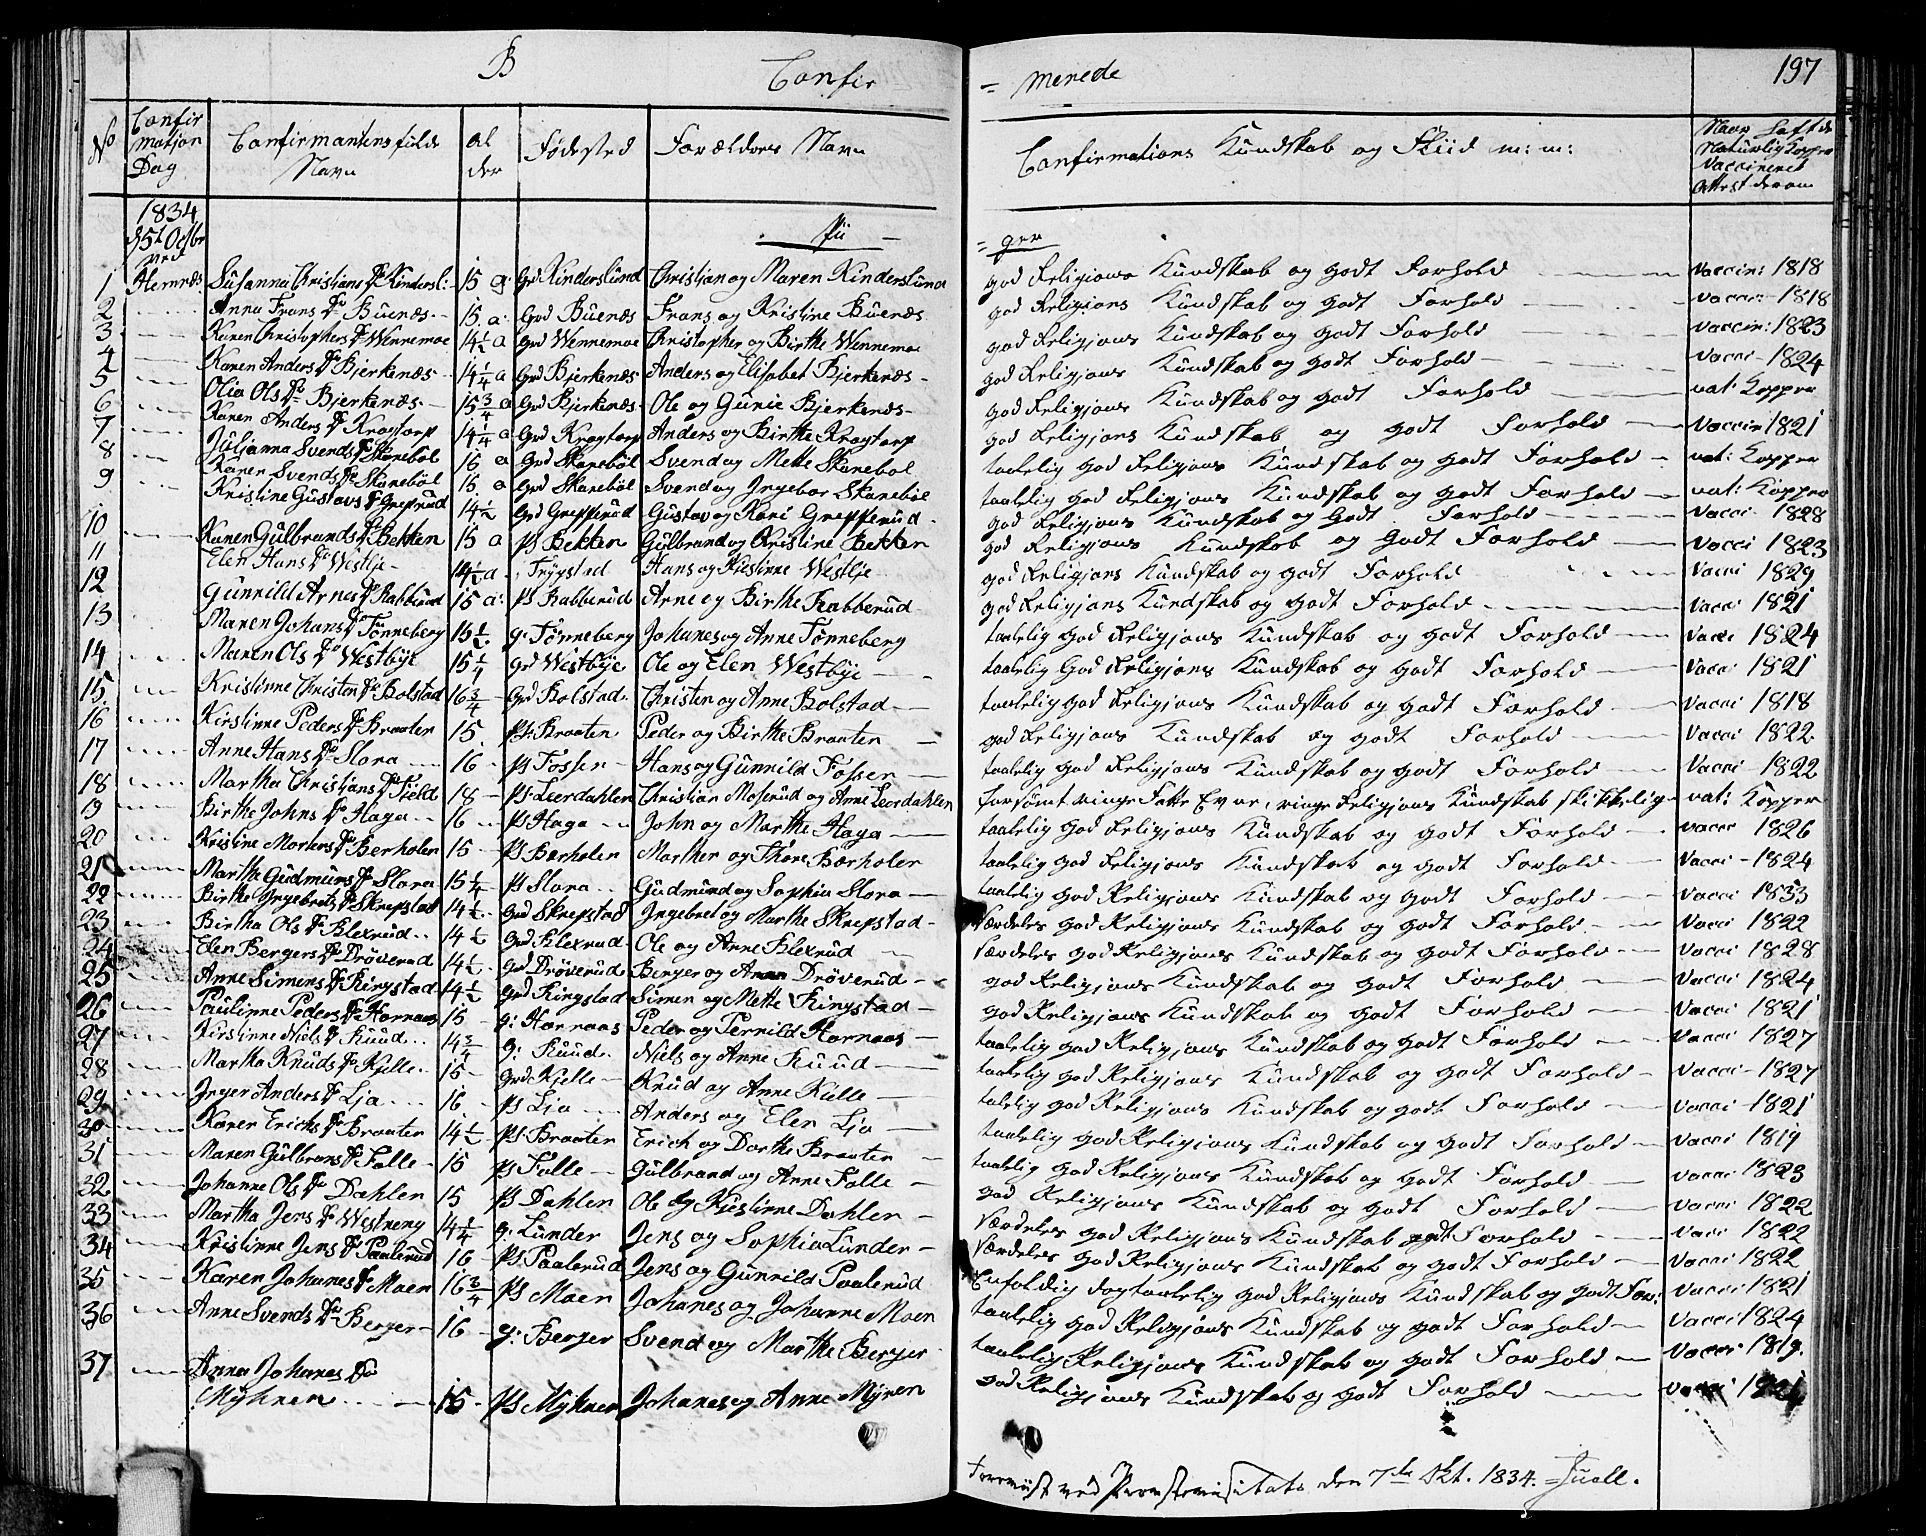 B Confir = merede 197
No Confir matjon Dag Confirmantens fulde Navn Al der Fødested Forældres Navn Confirmations Kundskab og Fliid m: m: Naar haft de Naturlig Kopper Vaccineret Attest derom
1834 5t Octbr ved Pii = ger
1 Hemnæs Susanna Christians Dr Kindersl: 15 a: Grd Kinderslund Christian og Maren Kinderslund god Religjons Kundskab og godt Forhold vaccin: 1818
2 Anna Frans Dr Buenæs 15 a: Grd Buenæs Frans og Kristine Buenæs god Religjons Kundskab og godt Forhold vaccin 1818
3 Karen Christophers Dr Wennemoe 14 1/2 a Grd Wennemoe Christopher og Birthe Wennemoe god Religjons Kundskab og godt Forhold vaccin: 1823
4 Karen Anders Dr Bjerkenæs 14 1/4 a Grd Bjerkenæs Anders og Elisabet Bjerkenæs god Religjons Kundskab og godt Forhold vacci 1824
5 Olia Ols Dr Bjerkenæs 15 3/4 a Grd Bjerkenæs Ole og Gunie Bjerkenæs god Religjons Kundskab og godt Forhold nat: Kopper
6 Karen Anders Dr Kragtorp 14 1/4 a Grd Kragtorp Anders og Birthe Kragtorp god Religjons Kundskab og godt Forhold vaccin 1821
7 Juljanna Svends Dr Skanebøl 16 a Grd Skanebøl Svend og Mette Skanebøl taalelig god Religjons Kundskab og godt Forhold nat: Kopper
8 Karen Svends Dr Skanebøl 16 a Grd Skanebøl Svend og Ingebor Skanebøl taalelig god Religjons Kundskab og godt Forhold nat: Kopper
9 Kristine Gustavs Dr Greprud 14 1/2 Grd Grepperud Gustav og Kari Grepperud god Religjons Kundskab og Godt Forhold vacci 1828
10 Karen Gulbrands Dr Bekken 15 a Ps Bekken Gulbrand og Kristine Bekken god Religjons Kundskab og Godt Forhold vacci 1823
11 Elen Hans Dr Westlje 14 1/2 a Trygstad Hans og Kjestinne Westlje god Religjons Kundskab og godt Forhold vacci 1829
12 Gunnild Arnes Dr Rabberud 15 a: Ps Rabberud Arne og Birthe Rabberud god Religjons Kundskab og godt Forhold vacci 1821
13 Maren Johans Dr Tønneberg 15 1/2 g: Tønneberg Johanes og Anne Tønneberg taalelig god Religjons Kundskab og godt Forhold vacci 1824
14 Maren Ols Dr Westbye 15 1/4 Grd Westbye Ole og Elen Westbye taalelig God Religjons Kundskab og godt Forhold vacci 1821
15 Kristinne Christen Dr Bolstad 16 3/4 Grd Bolstad Christen og Anne Bolstad taalelig god Religjons Kundskab og godt Forhold vacci 1818
16 Kirstinne Peders Dr Braaten 15 Ps: Braaten Peder og Birthe Braaten god Religjons Kundskab og godt Forhold vacci 1822
17 Anne Hans Dr Slora 16 Ps Fosser Hans og Gunnild Fosser taalelig god Religjons Kundskab og godt Forhold vacci 1822
18 Martha Christians Dr Fjeld 18 Ps: Leerdahlen Christian Moserud og Anne Leerdahlen forsømt ringe Fatte Evne, ringe Religjons Kundskab skikkelig nat: Kopper
19 Birthe Johns Dr Haga 16 Ps Haga John og Marthe Haga taalelig god Religjons Kundskab og godt Forhold vacci 1826
20 Kristine Martens Dr Berholen 15 Ps Bærholen Marthen og Thore Bærholen taalelig god Religjons Kundskab og godt Forhold vacci 1824
21 Martha Gudmuns Dr Slora 15 1/4 Ps Slora Gudmund og Sophia Slora taalelig god Religjons Kundskab og godt Forhold vacci 1833
22 Birthe Ingebrets Dr Skrepstad 14 1/2 Grd Skrepstad Ingebret og Marthe Skrepstad særdeles god Religjons Kundskab og godt Forhold vacci 1822
23 Birthe Ols Dr Klexrud 14 1/2 Grd Klexrud Ole og Anne Klexrud særdeles god Religjons Kundskab og godt Forhold vacci 1828
24 Elen Bergers Dr Drøverud 14 1/2 Grd Drøverud Berger og Anne Drøverud god Religjons Kundskab og godt Forhold vacci 1824
25 Anne Simens Dr Ringstad 14 1/2 Grd Ringstad Simen og Mette Ringstad god Religjons Kundskab og godt Forhold vacci 1821
26 Paulinne Peders Dr Hornaas 15 g: Hornaas Peder og Pernild Hornaas taalelig god Religjons Kundskab og godt Forhold vacci 1827
27 Kirstinne Niels Dr Ruud 14 3/4 g: Ruud Niels og Anne Ruud taalelig god Religjons Kundskab og godt Forhold vacci 1827
28 Martha Knuds Dr Kjelle 15 Grd Kjelle Knud og Anne Kjelle talelig god Religjons Kundskab og godt Forhold vacci 1821
29 Inger Anders Dr Lja 16 Ps Lja Anders og Elen Lja taalelig god Religjons Kundskab og godt Forhold vacci 1819
30 Karen Ericks Dr Braaten 14 1/2 Ps: Braaten Erick og Dorthe Braaten taalelig god Religjons Kundskab og godt Forhold vacci 1823
31 Maren Gulbrans Dr Falle 15 Ps Falle Gulbrand og Anne Falle god Religjons Kundskab og godt Forhold vacci 1822
32 Johanne Ols Dr Dahlen 15 Ps Dahlen Ole og Kjestinne Dahlen særdeles god Religjons Kundskab godt Forhold vacci 1822
33 Martha Jens Dr Westreng 14 1/4 g: Lunder Jens og Sophia Lunder særdeles god Religjons Kundskab og godt Forhold vacci 1822
34 Kristinne Jens Dr Paalerud 16 Ps Paalerud Jens og Gunnild Paalerud Enfoldig dog taalelig god Religjons Kundskab og godt For: vacci 1821
35 Karen Johanes Dr Moen 16 3/4 Ps Moen Johanes og Johanne Moen taalelig god Religjons Kundskab og godt Forhold vacci 1824
36 Anne Svends Dr Berger 16 g: Berger Svend og Marthe Berger taalelig Religjons Kundskab og godt Forhold vacci 1819.
37 Anna Johanes Dr Myhren 15 Ps Myhren Johanes og Anne Myren god Religjons Kundskab og godt Forhold vacci 1824
Foreviist ved Provstevisitats den 7de Okt. 1834. Juell.